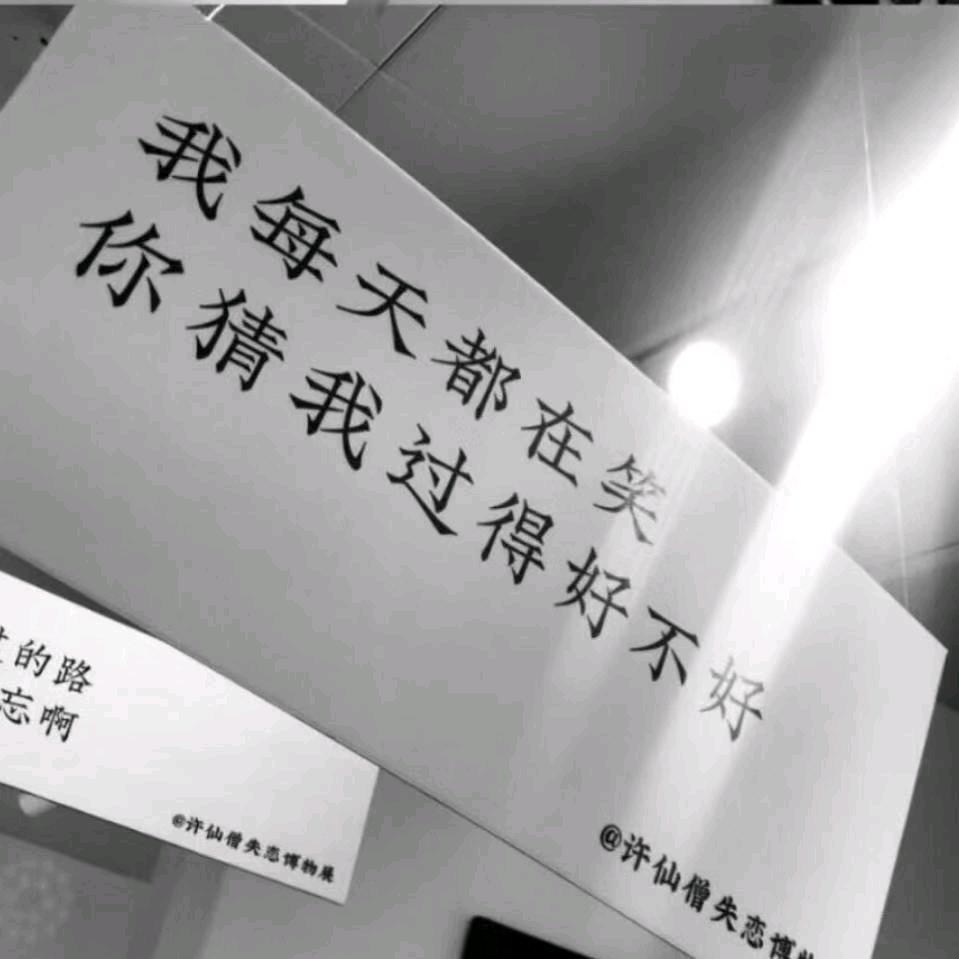 我每天都在笑
你猜我过得好不好
@许仙僧失恋博物
的路
忘啊
@许仙僧失恋博物展